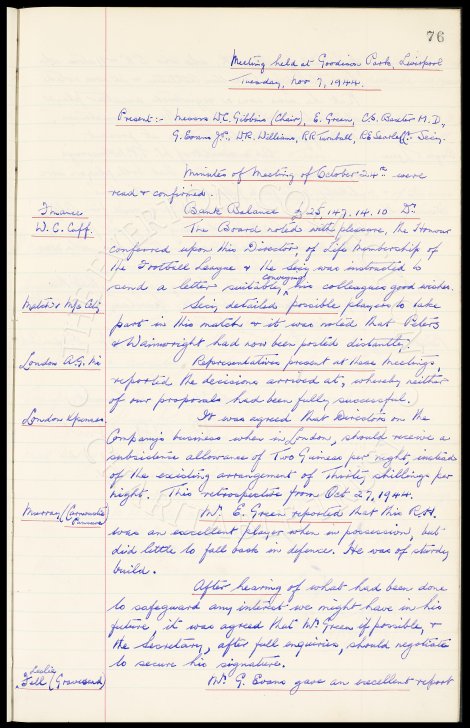 76
Meeting held at Goodison Park, Liverpool
Tuesday, Nov 7, 1944.
Present :- Messrs W.C. Gibbins (Chair), E. Green, C.S. Baxter M.D.,
G. Evans J.P., W.R. Williams, R.R. Turnbull, & Secy.
Minutes of Meeting of October 24th were
read & confirmed.
Finance
Bank Balance £25,147.14.10 Dr
W. C. Cuff.
The Board noted with pleasure, the Honour
conferred upon this Director, of Life Membership of
the Football League & the Secy was instructed to
send a letter suitably conveying his colleagues good wishes.
Match v M/c City
Secy detailed possible players to take
part in this match & it was noted that Peters
& Wainwright had now been posted distantly.
London A.G. Ms
Representatives present at these Meetings,
reported the decisions arrived at, whereby neither
of our proposals had been fully successful.
London Expenses
It was agreed that Directors on the
Company's business when in London, should receive a
subsistence allowance of Two Guineas per night, instead
of the existing arrangement of Thirty shillings per
night. This retrospective from Oct 27, 1944.
Murray
Mr. E. Green reported that this R.H.
was an excellent player when in possession, but
did little to fall back in defence. He was of sturdy
build.
After hearing of what had been done
to safeguard any interest we might have in his
future, it was agreed that Mr Green if possible, &
the Secretary, after full enquiries, should negotiate
to secure his signature.
Leslie
Fell (Gravesend)
Mr. G. Evans gave an excellent report